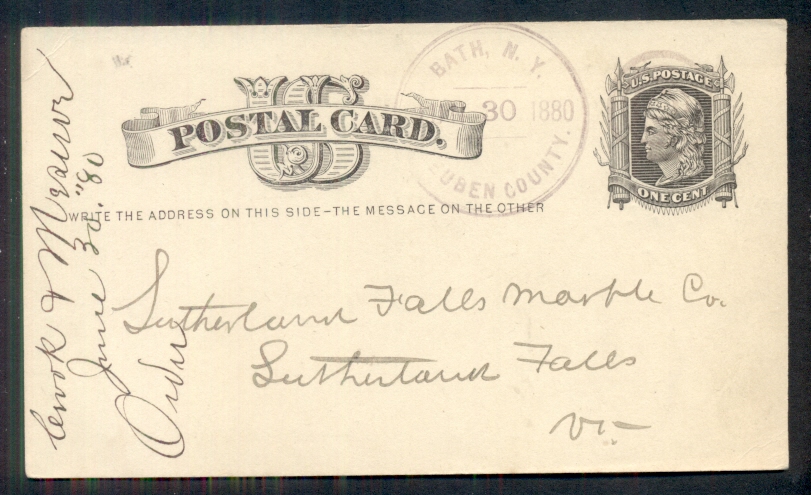 US
POSTAL CARD.
WRITE THE ADDRESS ON THIS SIDE-THE MESSAGE ON THE OTHER
BATH, N. Y.
30 1880
UBEN COUNTY.
U.S. POSTAGE
ONE CENT
Sutherland Falls Marble Co.
Sutherland Falls
Vt-
Crook &
June 30. "80
Order